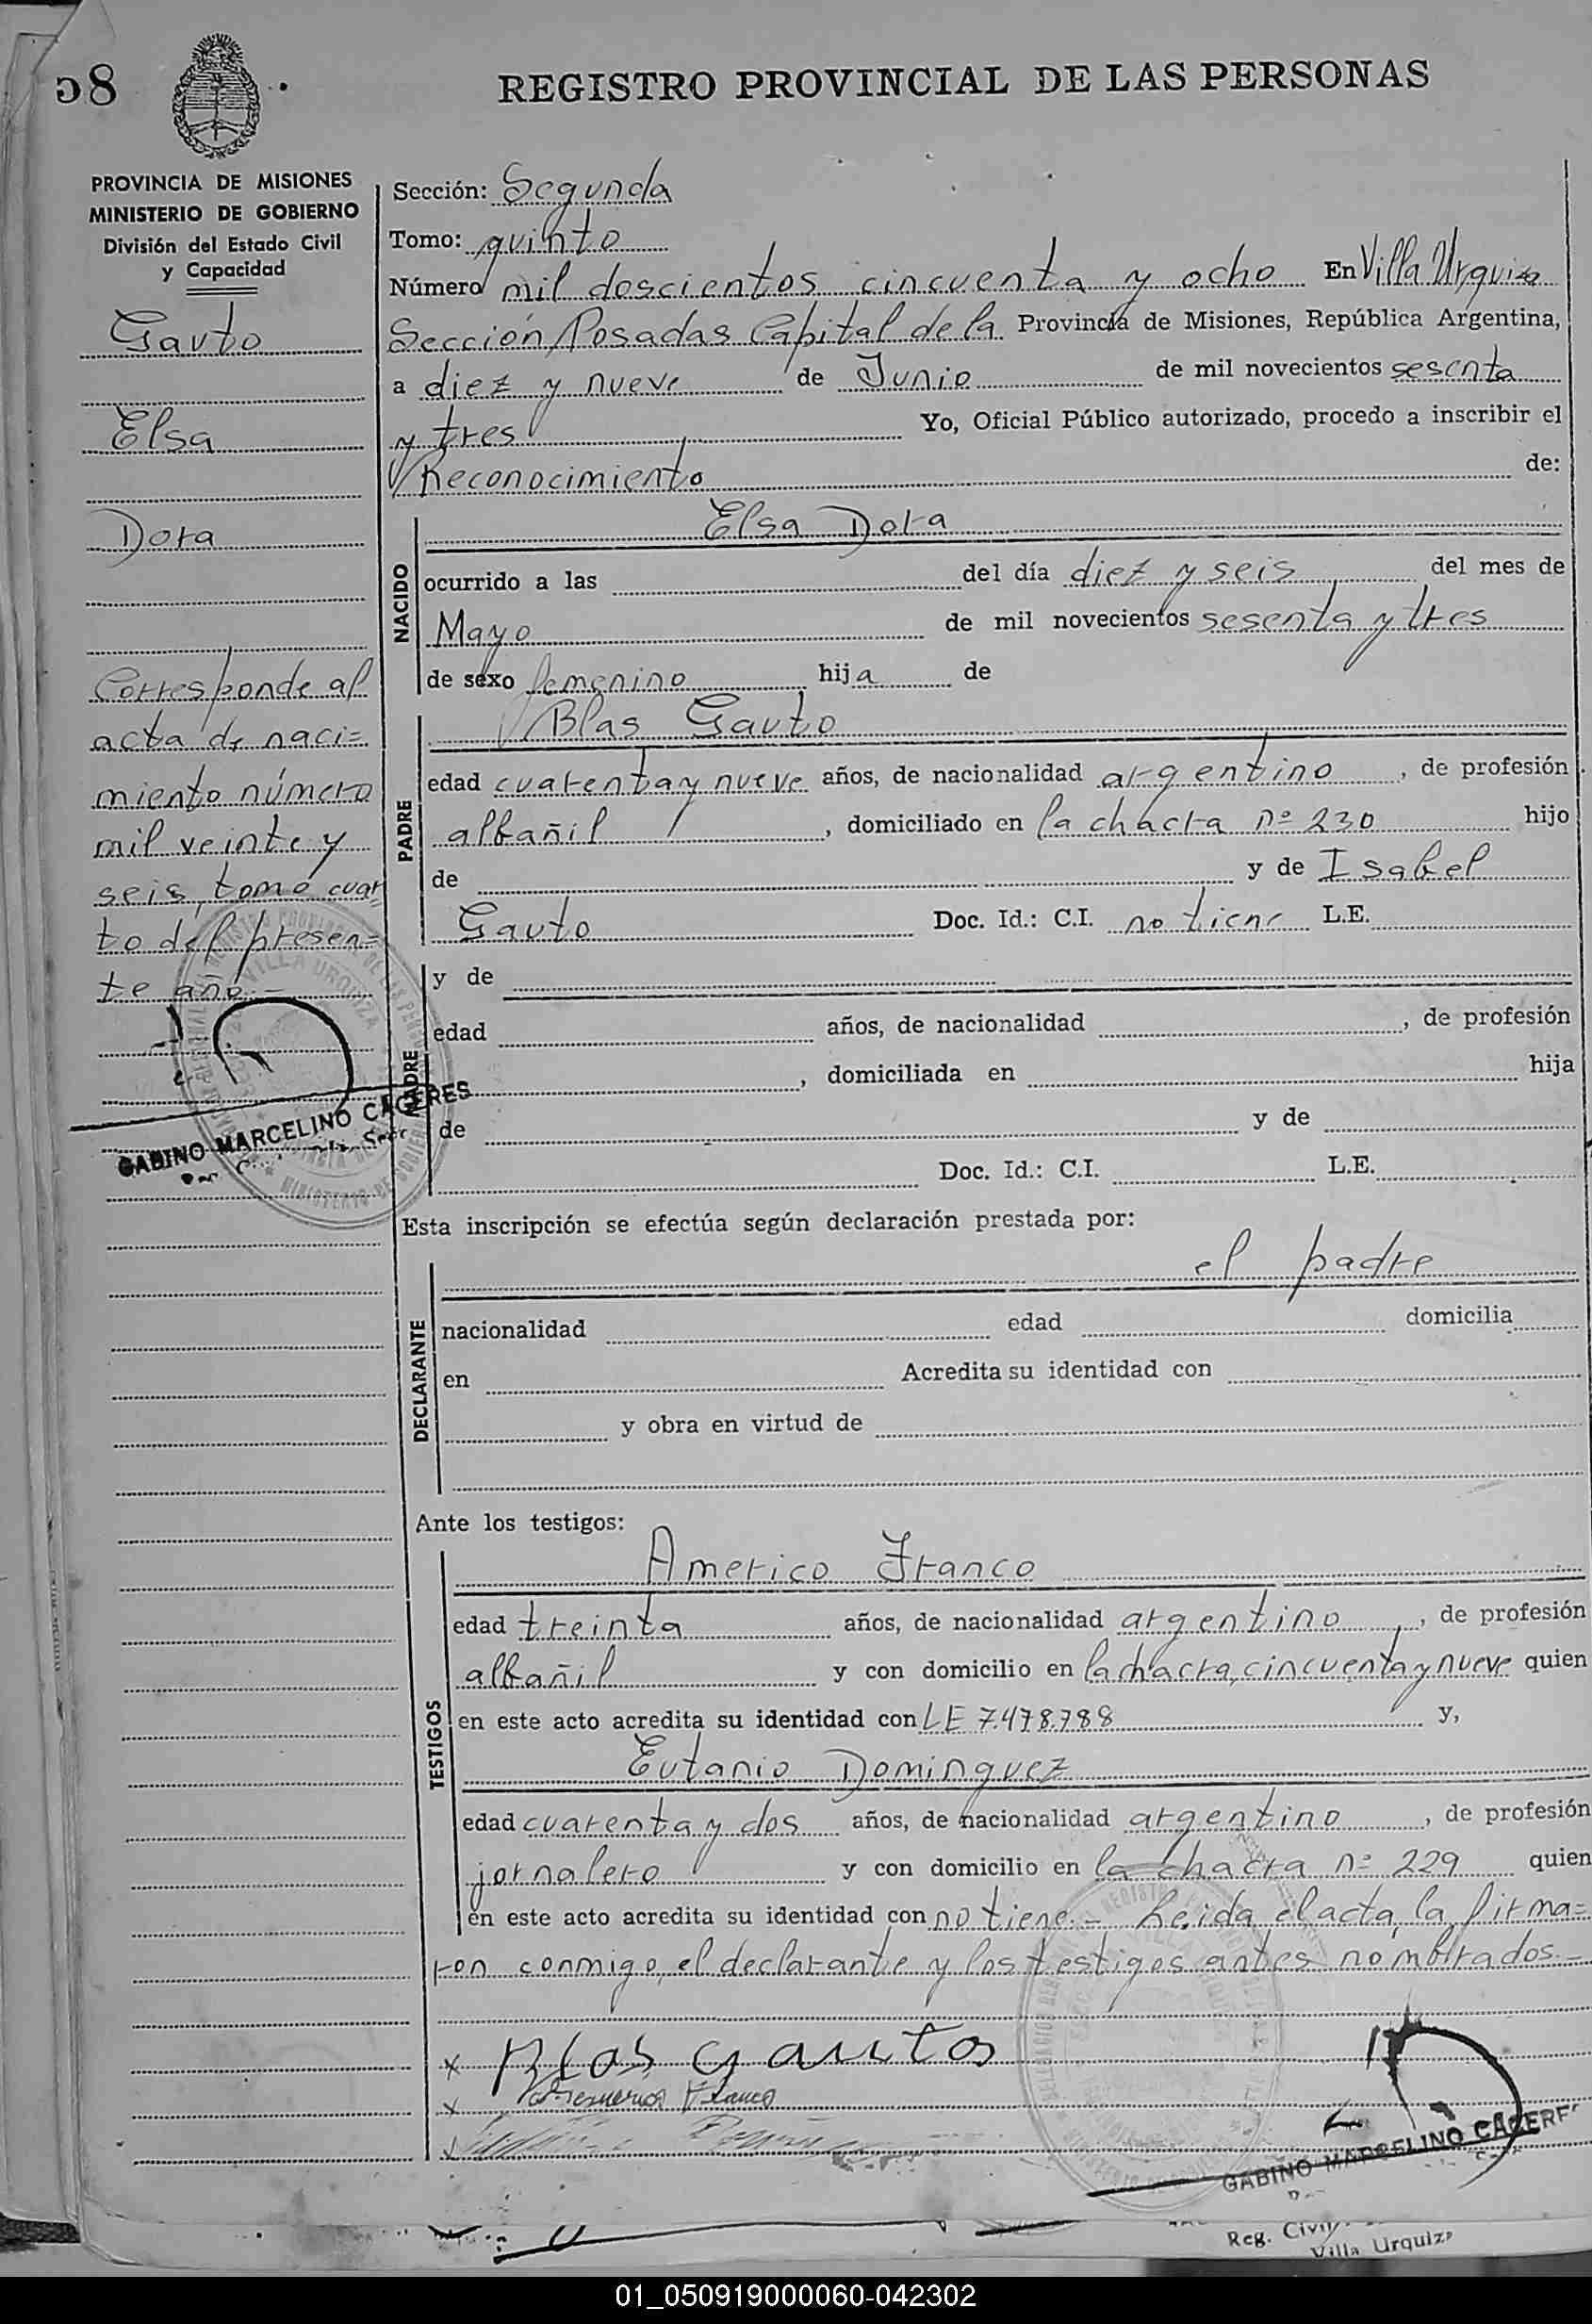 58
REGISTRO PROVINCIAL DE LAS PERSONAS
PROVINCIA DE MISIONES
MINISTERIO DE GOBIERNO
División del Estado Civil
y Capacidad
Gauto
Elsa
Dora
Corresponde al
acta de naci=
miento número
mil veinte y
seis, tomo cuar
to del presen=
te año.-
GABINO MARCELINO CACERES
Sección: Segunda
Tomo: quinto
Número mil doscientos cincuenta y ocho En Villa Urquiza
Sección Posadas Capital de la Provincia de Misiones, República Argentina,
a diez y nueve de Junio de mil novecientos sesenta
y tres Yo, Oficial Público autorizado, procedo a inscribir el
Reconocimiento de:
NACIDO
Elsa Dora
ocurrido a las del día diez y seis del mes de
Mayo de mil novecientos sesenta y tres
de sexo femenino hija de
PADRE
Blas Gauto
edad cuarenta y nueve años, de nacionalidad argentino, de profesión
albañil, domiciliado en la chacra nº 230 hijo
de y de Isabel
Gauto Doc. Id.: C.I. no tiene L.E.
MADRE
y de
edad años, de nacionalidad , de profesión
, domiciliada en hija
de y de
Doc. Id.: C.I. L.E.
Esta inscripción se efectúa según declaración prestada por:
DECLARANTE
el padre
nacionalidad edad domicilia
en Acredita su identidad con
y obra en virtud de
Ante los testigos:
TESTIGOS
Americo Franco
edad treinta años, de nacionalidad argentino, de profesión
albañil y con domicilio en la chacra, cincuenta y nueve quien
en este acto acredita su identidad con LE 7.478.788 y,
Eutanio Dominguez
edad cuarenta y dos años, de nacionalidad argentino, de profesión
jornalero y con domicilio en la chacra nº 229 quien
en este acto acredita su identidad con no tiene.- Leida el acta, la firma=
ron conmigo, el declarante y los testigos antes nombrados.-
x Blas Gautos
x Franco
x
GABINO MARCELINO CACERE
Reg. Civil
Villa Urquiza
01_050919000060-042302